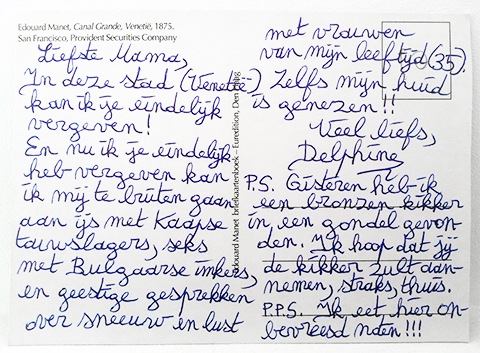 Edouard Manet, Canal Grande, Venetië, 1875.
San Francisco, Provident Securities Company
Liefste Mama,
In deze stad (Venetië)
kan ik je eindelijk
vergeven!
En nu ik je eindelijk
heb vergeven kan
ik mij te buiten gaan
aan ijs met Kaapse
touwslagers, seks
met Bulgaarse imkers,
en geestige gesprekken
over sneeuw en lust
Edouard Manet briefkaartenboek – Euredition, Den Haag
met vrouwen
van mijn leeftijd (35).
Zelfs mijn huid
is genezen!!
Veel liefs,
Delphine
P.S. Gisteren heb ik
een bronzen kikker
in een gondel gevon-
den. Ik hoop dat jij
de kikker zult aan-
nemen, straks, thuis.
P.P.S. Ik eet hier on-
bevreesd noten!!!